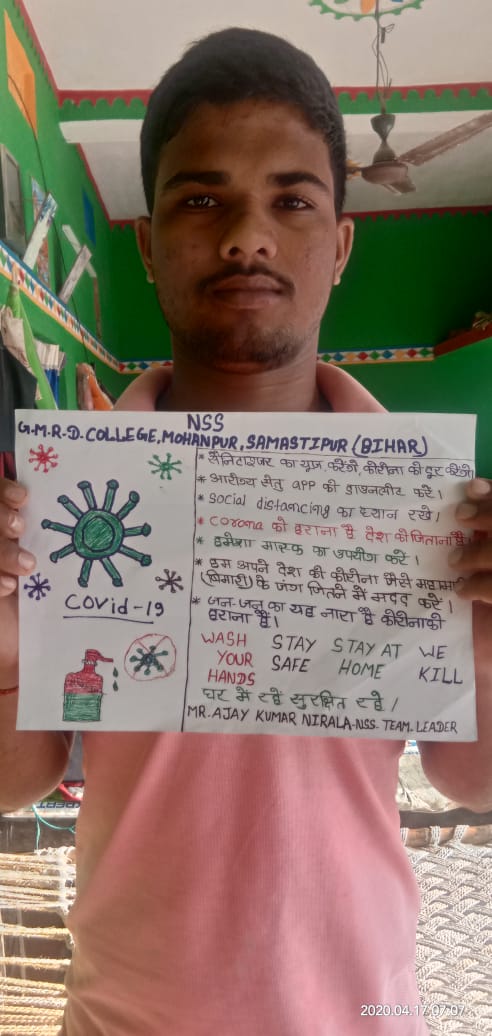 NSS
G.M.R.D. COLLEGE, MOHANPUR, SAMASTIPUR (BIHAR)
* सैनिटाइजर का यूज करेंगे, कोरोना को दूर करेंगे
* आरोग्य सेतु APP को डाउनलोड करें।
* Social distancing का ध्यान रखें।
* Corona को हराना है देश को जिताना है।
* हमेशा मास्क का उपयोग करें।
* हम अपने देश की कोरोना जैसे महामारी
(बिमारी) के जंग जितने में मदद करें।
* जन-जन का यह नारा है कोरोना को
हराना है।
COVid-19
WASH YOUR HANDS
STAY SAFE
STAY AT HOME
WE KILL
घर में रहें सुरक्षित रहें।
MR. AJAY KUMAR NIRALA-NSS. TEAM. LEADER
2020.04.17 07:07